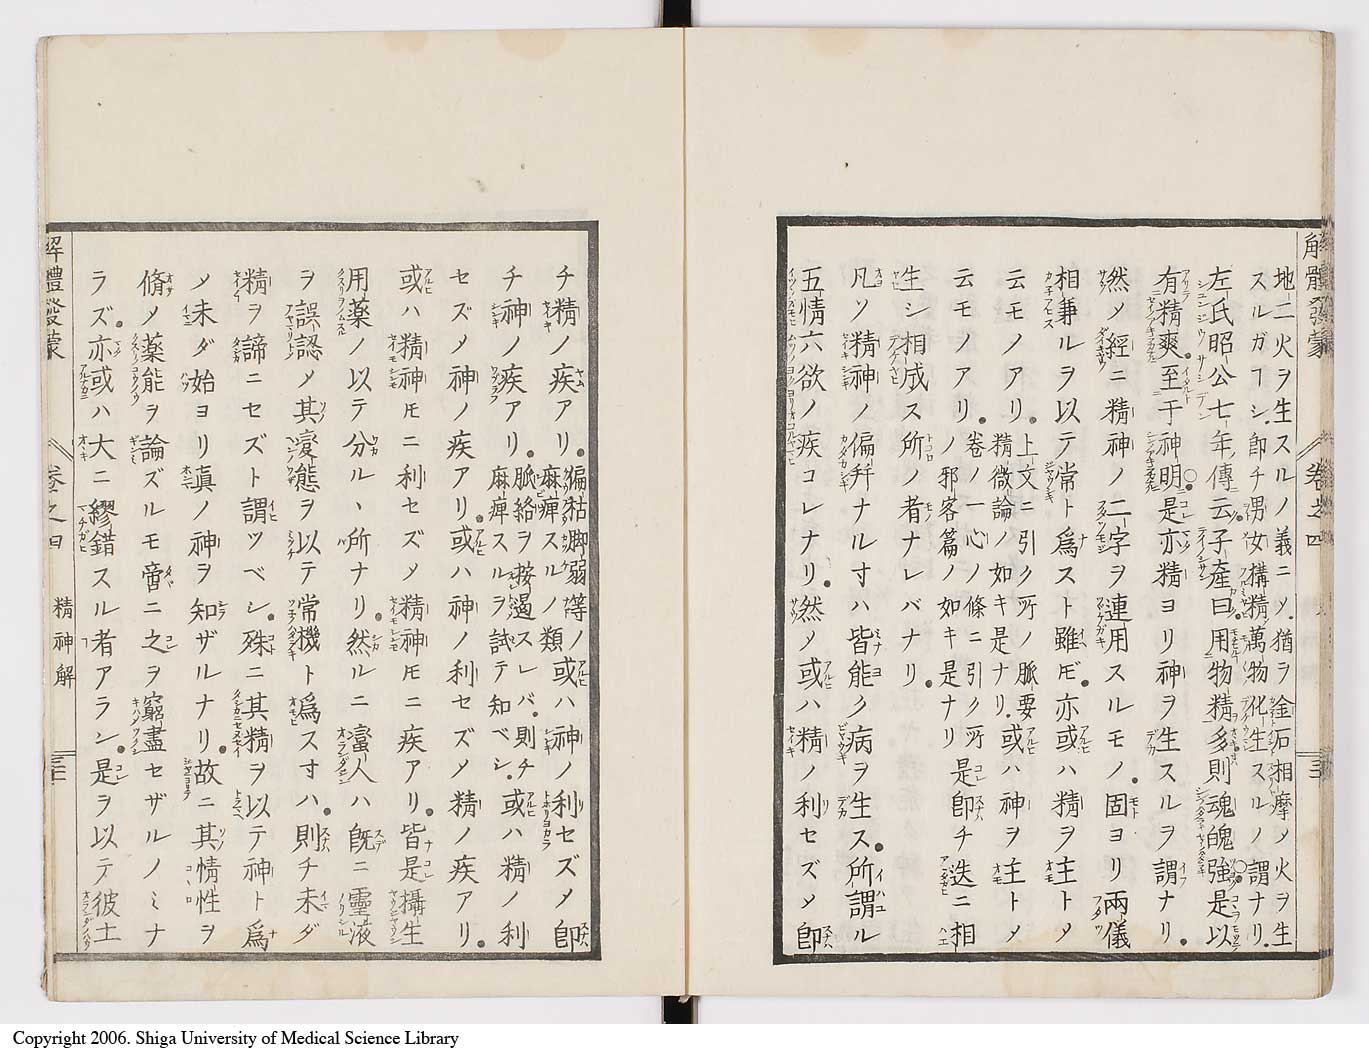 解體發蒙
卷之四
三十一
地ニ火ヲ生スルノ義ニシテ猶ヲ金石相摩メ火ヲ生
スルガヿシ即チ男女構精萬物化生スルノ謂ナリ
左氏昭公七年傳云子產曰用物精多則魂魄強是以
有精爽至于神明是亦精ヨリ神ヲ生スルヲ謂ナリ
然メ經ニ精神ノ二字ヲ連用スルモノ固ヨリ兩儀
相兼ルヲ以テ常ト爲スト雖𪜈亦或ハ精ヲ主トメ
云モノアリ上文ニ引ク所ノ脈要
精微論ノ如キ是ナリ或ハ神ヲ主トメ
云モノアリ卷ノ一心ノ條ニ引ク所
ノ邪客篇ノ如キ是ナリ是卽チ迭ニ相
生シ相成ス所ノ者ナレバナリ
凡ソ精神ノ偏弁ナル寸ハ皆能ク病ヲ生ス所謂ル
五情六欲ノ疾コレナリ然メ或ハ精ノ利セズメ卽
チ精ノ疾アリ偏牯脚弱等ノ
麻痺スルノ類或ハ神ノ利セズメ卽
チ神ノ疾アリ脈絡ヲ按遏スレバ則チ
麻痺スルヲ試テ知ベシ或ハ精ノ利
セズメ神ノ疾アリ或ハ神ノ利セズメ精ノ疾アリ
或ハ精神𪜈ニ利セズメ精神𪜈ニ疾アリ皆是攝生
用藥ノ以テ分ルヽ所ナリ然ルニ蠻人ハ旣ニ靈液
ヲ誤認メ其變態ヲ以テ常機ト爲ス寸ハ則チ未ダ
精ヲ諦ニセズト謂ツベシ殊ニ其精ヲ以テ神ト爲
メ未ダ始ヨリ眞ノ神ヲ知ザルナリ故ニ其情性ヲ
脩メ藥能ヲ論ズルモ啻ニ之ヲ窮盡セザルノミナ
ラズ亦或ハ大ニ繆錯スル者アラン是ヲ以テ彼土
解體發蒙
卷之四
精神解
三十二
Copyright 2006. Shiga University of Medical Science Library